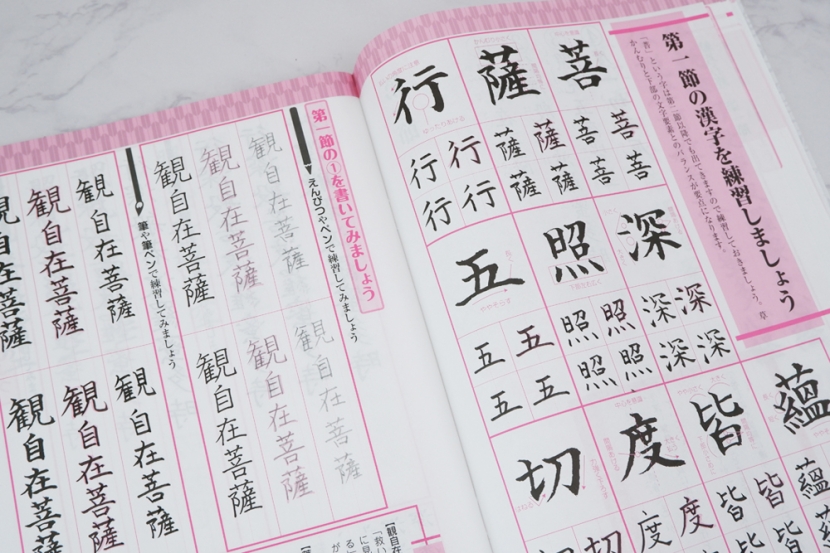 第一節の漢字を練習しましょう
「菩」という字は第二節以降でも出てきますので練習しておきましょう。草
かんむりと下部の文字要素とのバランスが要点になります。
菩
菩菩
菩菩
薩
薩薩
薩薩
行
行行
行行
深
深深
深深
照
照照
照照
五
五五
五五
蘊
蘊
皆
皆皆
皆
度
度度
切
切切
第一節の①を書いてみましょう
えんぴつやペンで練習してみましょう
観自在菩薩
観自在菩薩
観自在菩薩
観自在菩薩
観自在菩薩
観自在菩薩
筆や筆ペンで練習してみましょう
観自在菩薩
観自在菩薩
観自在菩薩
観自在菩薩
観自在菩薩
観自在菩薩
【観自在
「救い